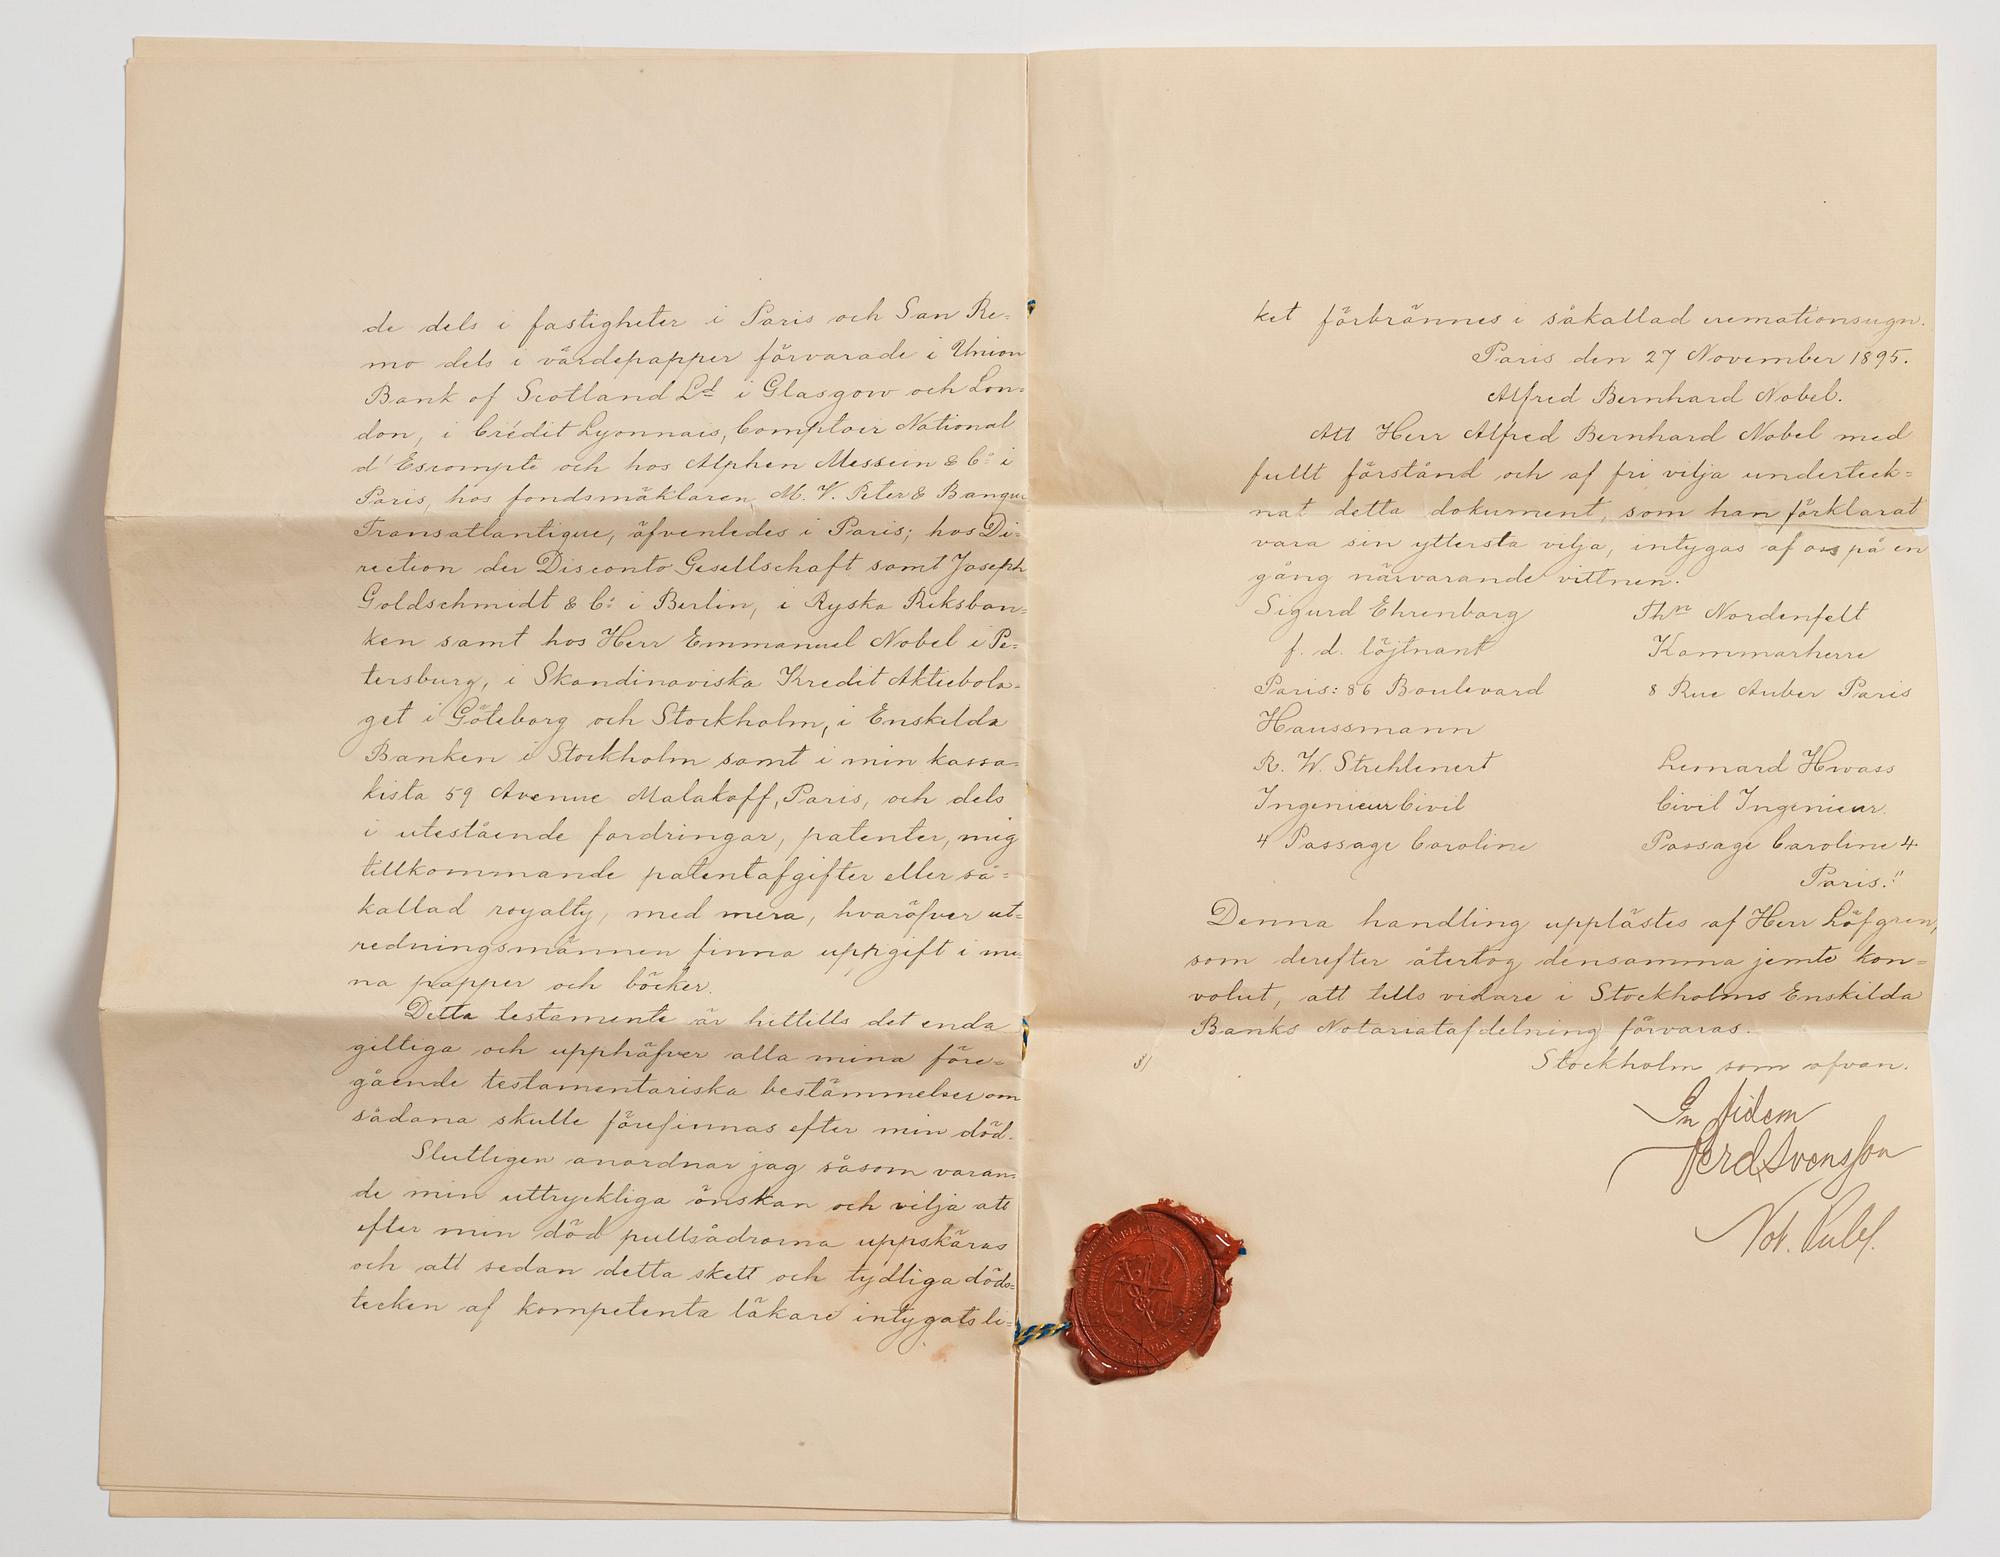 de dels i fastigheter i Paris och San Re=
mo dels i värdepapper förvarade i Union
Bank of Scotland Ld i Glasgow och Lon=
don, i Crédit Lyonnais, Comptoir National
d'Escompte och hos Alphen Messein & Co i
Paris, hos fondsmäklaren M. V. Peter & Banque
Transatlantique, äfvenledes i Paris; hos Di=
rection der Disconto Gesellschaft samt Joseph
Goldschmidt & Co i Berlin, i Ryska Riksban=
ken samt hos Herr Emmanuel Nobel i Pe=
tersburg, i Skandinaviska Kredit Aktiebola=
get i Göteborg och Stockholm, i Enskilda
Banken i Stockholm samt i min kassa=
kista 59 Avenue Malakoff, Paris, och dels
i utestående fordringar, patenter, mig
tillkommande patentafgifter eller så=
kallad royalty, med mera, hvaröfver ut=
redningsmännen finna uppgift i mi=
na papper och böcker.
Detta testamente är hittills det enda
giltiga och upphäfver alla mina före=
gående testamentariska bestämmelser om
sådana skulle förefinnas efter min död.
Slutligen anordnar jag såsom varan=
de min uttryckliga önskan och vilja att
efter min död pullsådrorna uppskäras
och att sedan detta skett och tydliga döds=
tecken af kompetenta läkare intygats li=
ket förbrännes i såkallad cremationsugn.
Paris den 27 November 1895.
Alfred Bernhard Nobel.
Att Herr Alfred Bernhard Nobel med
fullt förstånd och af fri vilja underteck=
nat detta dokument, som han förklarat
vara sin yttersta vilja, intygas af oss på en
gång närvarande vittnen.
Sigurd Ehrenborg Thn Nordenfelt
f. d. löjtnant Kammarherre
Paris: 86 Boulevard 8 Rue Auber Paris
Haussmann
R. W. Strehlenert Leonard Hwass
Ingenieur Civil Civil Ingenieur.
4 Passage Caroline Passage Caroline 4
Paris."
Denna handling upplästes af Herr Löfgren,
som derefter återtog densamma jemte kon=
volut, att tills vidare i Stockholms Enskilda
Banks Notariatafdelning förvaras.
3/ Stockholm som ofvan.
In fidem
Ferd Svensson
Not. Publ.